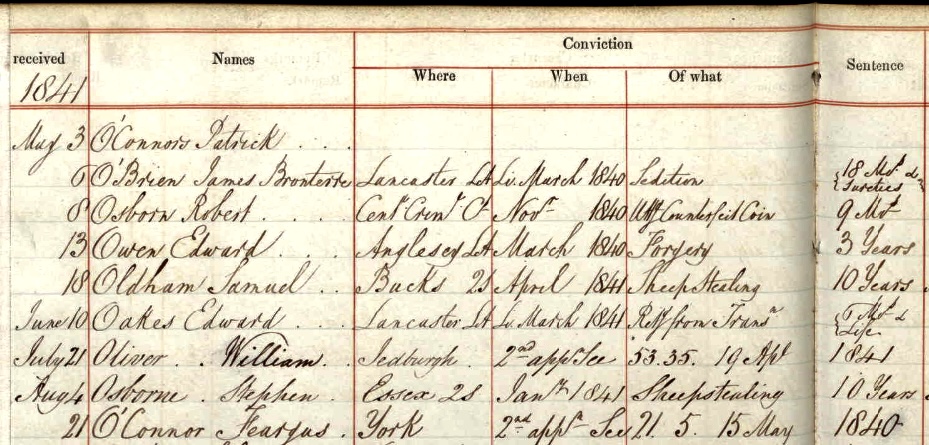 received Names Conviction Sentence
Where When Of what
1841
May 3 O'Connors Patrick . . .
6 O'Brien James Bronterre Lancaster Lt Li. March 1840 Sedition {18 Mos. & Sureties
8 Osborn Robert . . . . Centl Criml Ct Novr 1840 Uttg Counterfeit Coin 9 Mos
13 Owen Edward . . . Anglesey Lt March 1840 Forgery 3 Years
18 Oldham Samuel . . Bucks 2S April 1841 Sheep Stealing 10 Years
June 10 Oakes Edward . . . Lancaster Lt Li. March 1841 Retg from Transn {6 Mos & Life
July 21 Oliver . William . Jedburgh . 2nd appn See 53.35. 19 Apl 1841
Aug 4 Osborne . Stephen . Essex 2S Jany 1841 Sheepstealing 10 Years
21 O'Connor Feargus . York 2nd appn See 21. 5. 15 May 1840